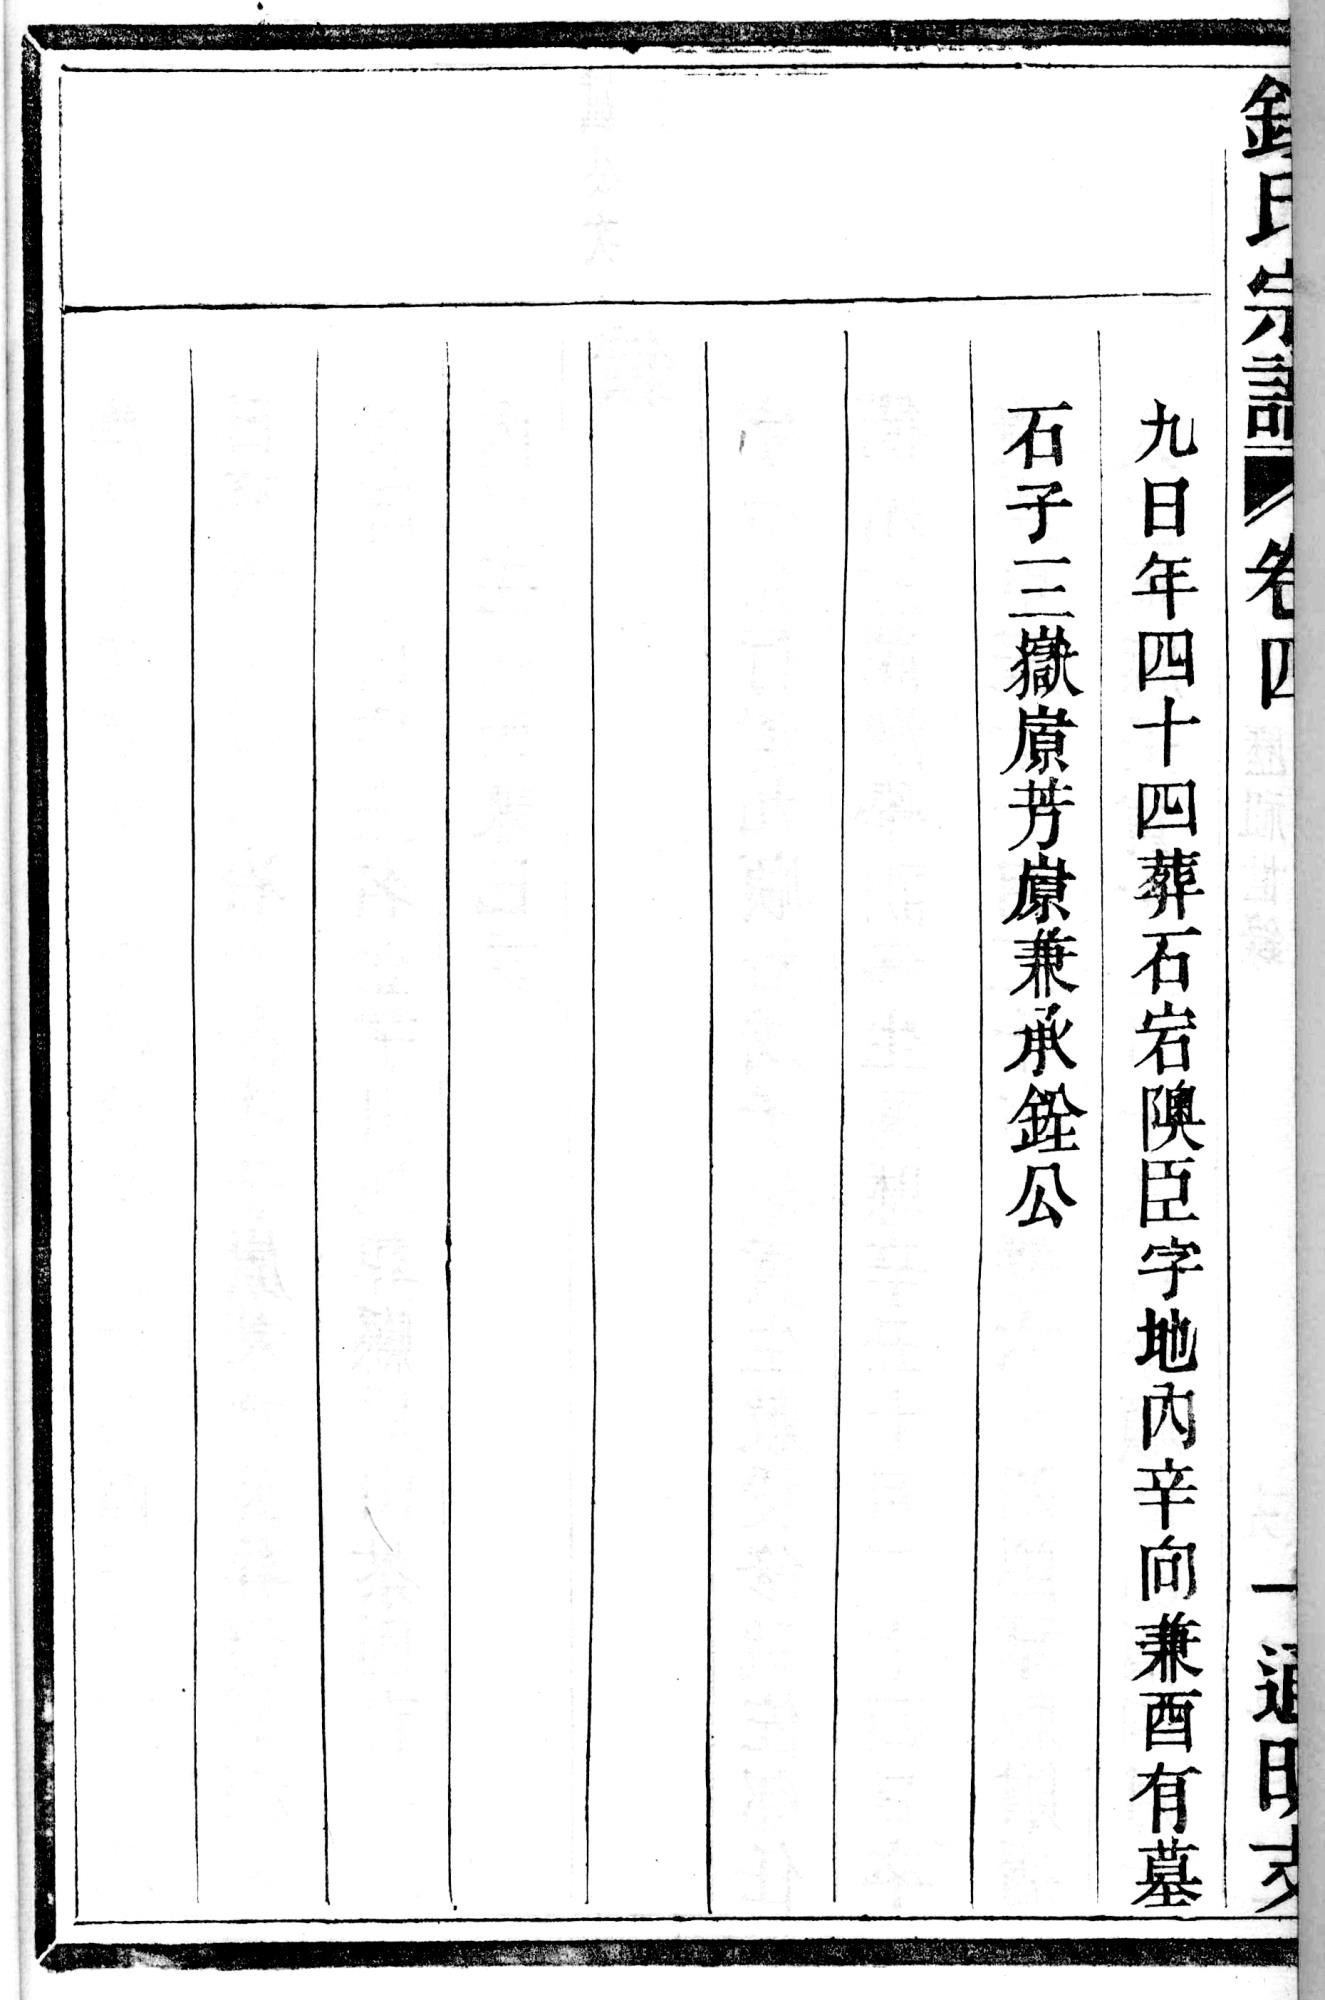 氏宗譜 卷四 一 通明支
九日年四十四葬石岩隩臣字地內辛向兼酉有墓
石子三嶽芳兼承銓公